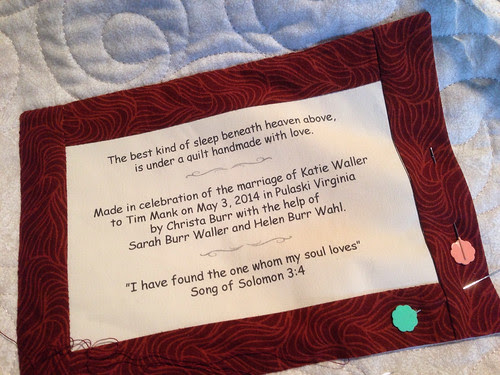 The best kind of sleep beneath heaven above,
is under a quilt handmade with love.
Made in celebration of the marriage of Katie Waller
to Tim Mank on May 3, 2014 in Pulaski Virginia
by Christa Burr with the help of
Sarah Burr Waller and Helen Burr Wahl.
"I have found the one whom my soul loves"
Song of Solomon 3:4